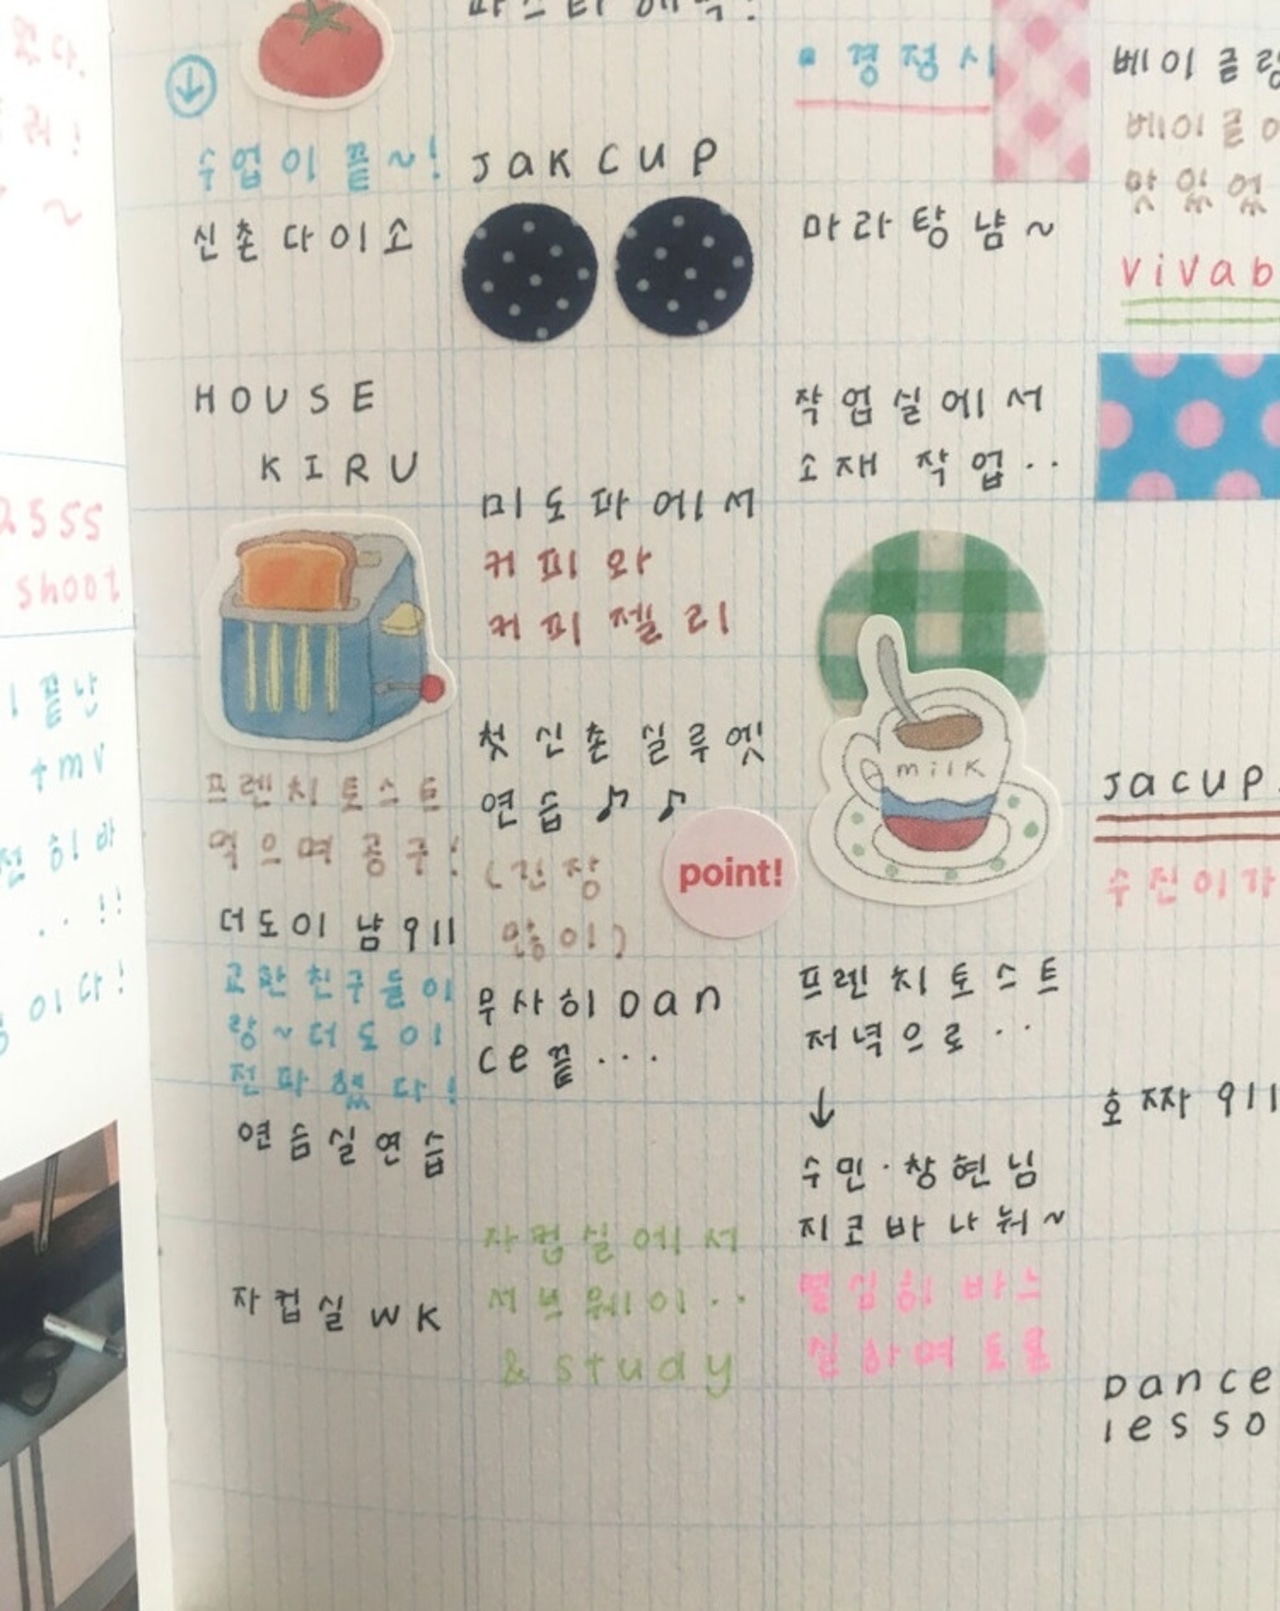 수업이 끝~!
신촌다이소
HOUSE
KIRU
프렌치토스트
먹으며 공구!
더도이 냠 911
교환친구들이
랑~더도이
전파했다!
연습실연습
자컵실 WK
JAKCUP
미도파에서
커피와
커피젤리
첫 신촌 실루엣
연습♪♪
(긴장
많이)
point!
무사히 Dan
ce 끝...
자컵실에서
서브웨이..
& study
• 경정시
마라탕 냠~
작업실에서
소재 작업..
milk
프렌치토스트
저녁으로..
↓
수민·창현님
지코바 나눠~
열심히 바스
실하며 토론
베이글
베이글
맛있었
vivab
Jacup.
수진이
호짜 911
Dance
lesso
2555
shoot
끝난
+mv
히바
이다!